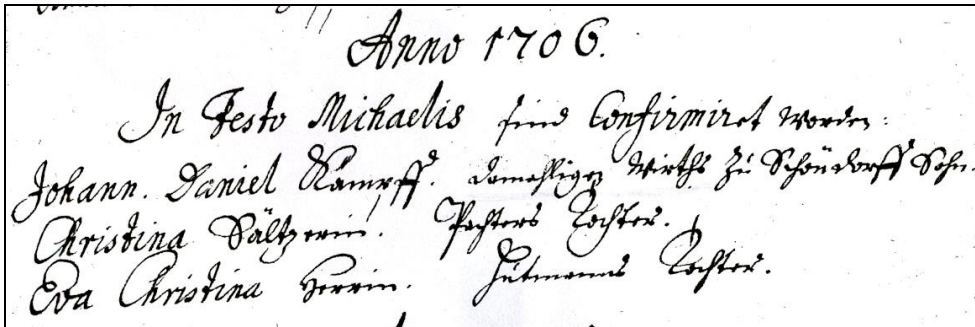 Anno 1706.
In Festo Michaelis sind Confirmiret worden:
Johann. Daniel Kämpff. damahligen Wirths zu Schöndorff Sohn.
Christina Sältzerin. Pachters Tochter.
Eva Christina Herrin. Hutmanns Tochter.